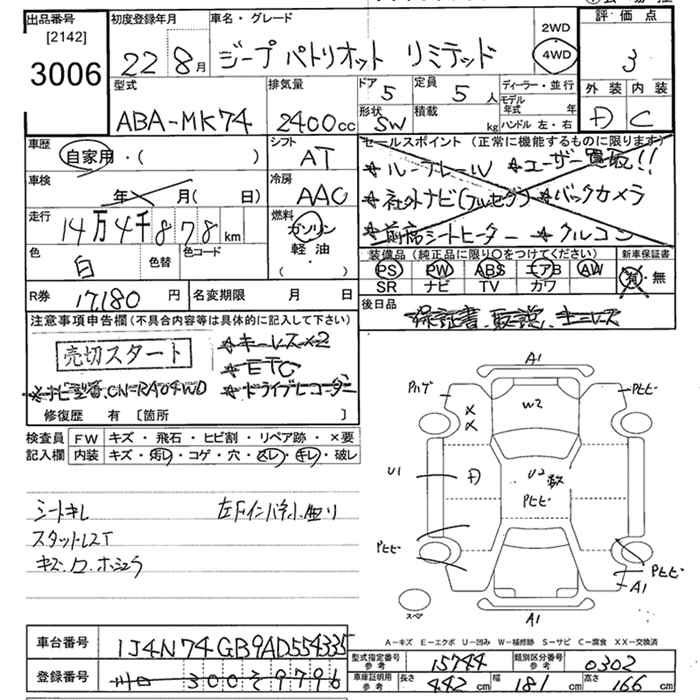 出品番号
[2142]
3006
初度登録年月
22 8月
車名・グレード
ジープ パトリオット リミテッド
2WD
4WD
評価点
3
外装 内装
D C
型式
ABA-MK74
排気量
2400cc
ドア 5
形状 SW
定員 5人
積載 kg
ディーラー・並行
モデル年式 年
ハンドル 左・右
車歴
自家用・( )
シフト
AT
車検
年 月( 日)
冷房
AAC
走行
14万4千878km
燃料
ガソリン
軽油
( )
色
白
色替
色コード
R券 17,180円
名変期限 月 日
セールスポイント (正常に機能するものに限ります)
★ルーフレール ★ユーザー買取!!
★社外ナビ(フルセグ) ★バックカメラ
★前席シートヒーター ★クルコン
装備品 (純正品に限り○をつけてください)
PS PW ABS エアB AW
SR ナビ TV カワ
新車保証書
有・無
後日品
保証書、取説、キーレス
注意事項申告欄(不具合内容等は具体的に記入して下さい)
売切スタート
★キーレス×2
★ETC
※ナビ型番、CN-RA04WD ★ドライブレコーダー
修復歴 有 [箇所 ]
検査員記入欄
FW キズ・飛石・ヒビ割・リペア跡・×要
内装 キズ・汚レ・コゲ・穴・スレ・キレ・破レ
シートキレ 左Fインパネ小曲り
スタットレスT
キズ、ワ、ホシュウ
A1
Pハゲ
Pヒビ
W2
U1
D
U2
Pヒビ
Pヒビ
Pヒビ
A1
スペア
A1
A-キズ E-エクボ U-凹み W-補修跡 S-サビ C-腐食 XX-交換済
車台番号 1J4N74GB9AD554335
登録番号 300 そ 9796
型式指定番号 参考 15744
類別区分番号 参考 0302
車庫証明用 参考 長さ 442cm 幅 181cm 高さ 166cm